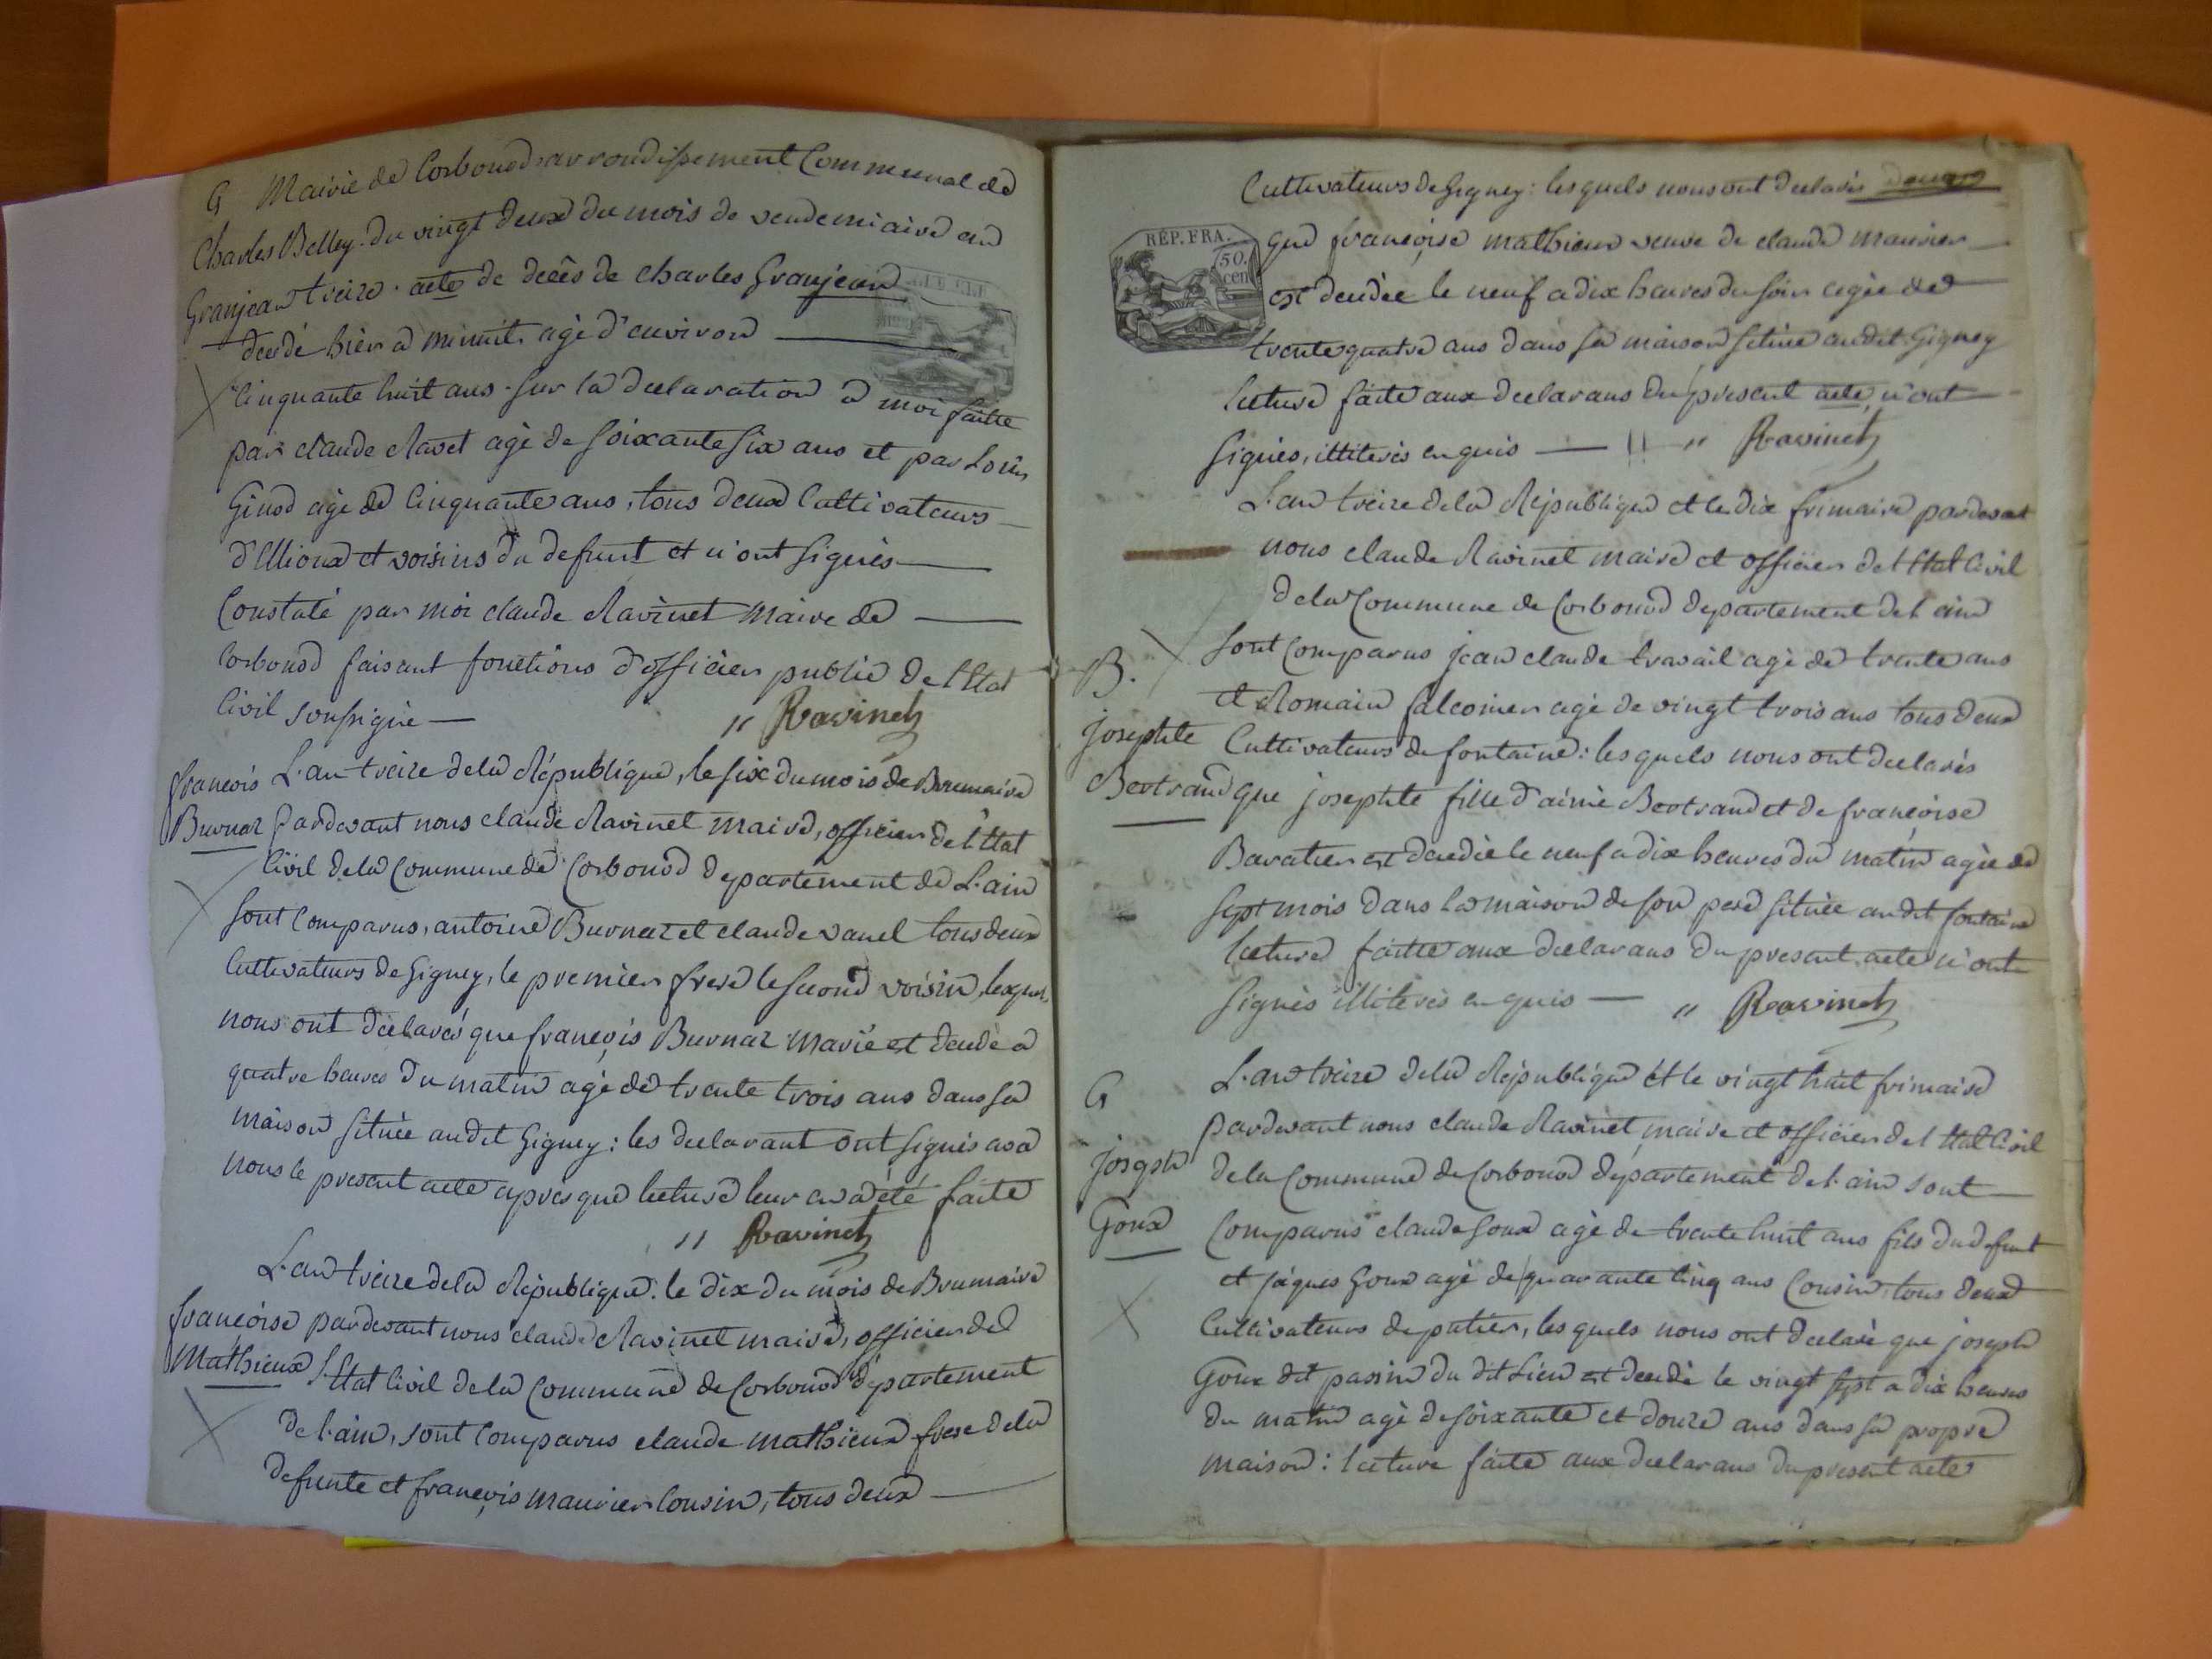 G Mairie de Corbonod arrondissement Communal de
Charles Belley. du vingt deux du mois de vendemiaire an
Granjean treize. acte de decès de charles Granjean
decedé hièr a minuit agé d'environ
Cinquante huit ans. sur la declaration a moi faitte
par claude Ravet agé de soixante six ans et par Loüis
Ginod agé de Cinquante ans, tous deux Cultivateurs
d'Ellioux et voisins du defunt et n'ont signés
Constaté par moi claude Ravinet Maire de
Corbonod faisant fonctions d'officier public de l'Etat
Civil soussigné
" Ravinet
françois L'an treize de la République, le six du mois de Brumaire
Burnaz pardevant nous claude Ravinet maire, officier de l'Etat
Civil de la Commune de Corbonod departement de L'ain
sont Comparus, antoine Burnaz et claude vanel tous deux
Cultivateurs de Gigney, le premier frere le second voisin, lesquels
nous ont déclarés que françois Burnaz marié est decedé a
quatre heures du matin agé de trente trois ans dans sa
maison située audit Gigney: les declarant ont signés avec
nous le present acte apres que lecture leur en a été faite
" Ravinet
L'an treize de la République. le dix du mois de Brumaire
françoise pardevant nous claude Ravinet maire, officier de
Mathieux l'Etat Civil de la Commune de Corbonod département
de l'ain, sont Comparus claude mathieux frere de la
defunte et françois maurier Cousin, tous deux
Cultivateurs de Gigney: lesquels nous ont declarés
RÉP. FRA.
50. cen
que françoise mathieux veuve de claude maurier
est decedée le neuf a dix heures du soir agée de
trente quatre ans dans sa maison scituée audit Gigney
lecture faite aux declarans du present acte, n'ont
signés, illiterés enquis " Ravinet
L'an treize de la République et le dix frimaire pardevant
nous claude Ravinet maire et officier de l'Etat Civil
de la Commune de Corbonod departement de l'ain
sont Comparus jean claude travail agé de trente ans
B.
et Romain falconier agé de vingt trois ans tous deux
josephte Cultivateurs de fontaine: lesquels nous ont declarés
Bertrand que josephte fille d'aimé Bertrand et de françoise
Baratier est decedée le neuf a dix heures du matin agée de
sept mois dans la maison de son pere située audit fontaine
lecture faitte aux declarans du present acte n'ont
signés illiterés enquis " Ravinet
L'an treize de la République et le vingt huit frimaire
G
pardevant nous claude Ravinet, maire et officier de l'Etat Civil
joseph de la Commune de Corbonod département de l'ain sont
Goux Comparus claude Goux agé de trente huit ans fils du defunt
et jaques Goux agé de quarante Cinq ans Cousin, tous deux
Cultivateurs de putier, lesquels nous ont declaré que joseph
Goux dit passin du dit Lieu est decedé le vingt sept a dix heures
du matin agé de soixante et douze ans dans sa propre
maison: lecture faite aux declarans du present acte